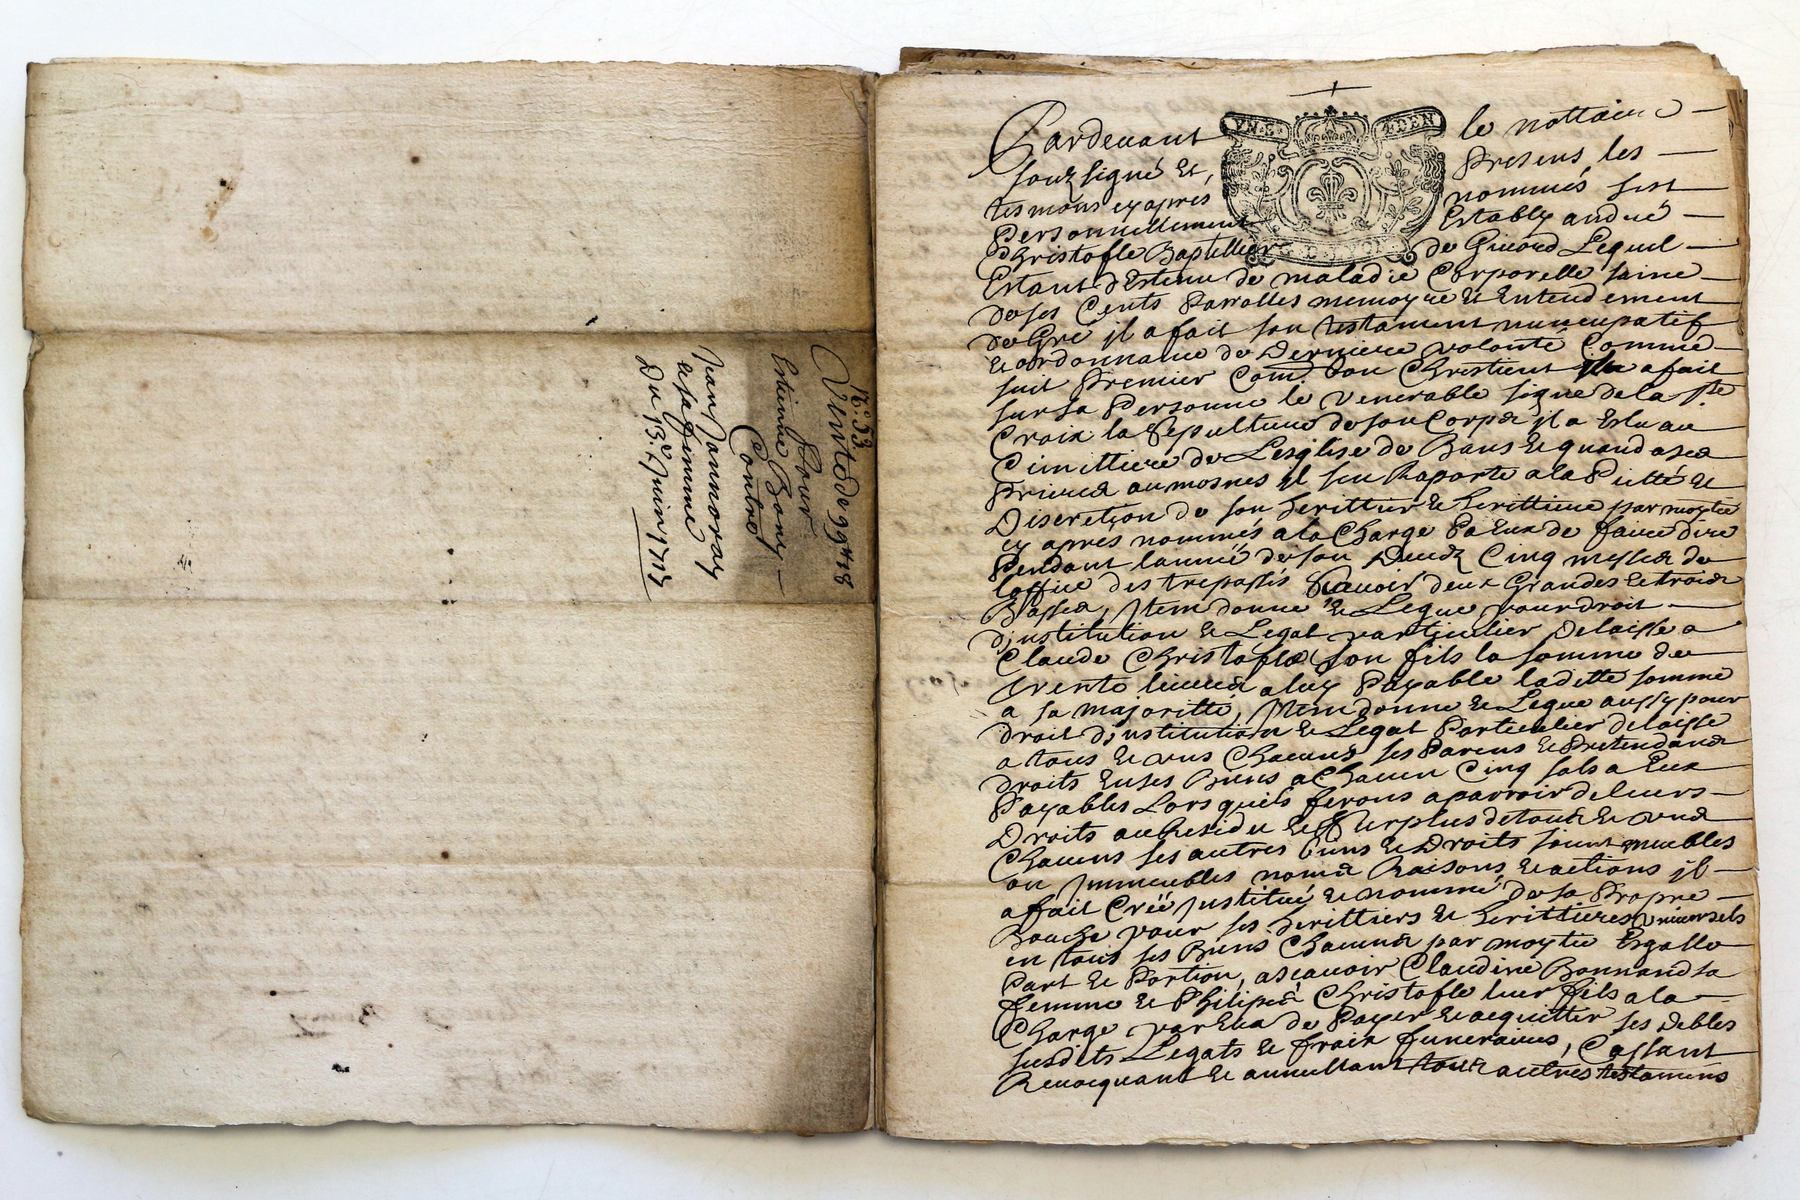 N.° 33
Vente de 99ᵗᵗ 18
Pour
Estienne Bony
Contre
Jean Jannoray
et sa femme
Du 13.e Juin 1713
Pardevant le nottaire
souzsigné Et, Presens les
tesmons cy apres nommés fust
Personnellement Estably andré
Christofle Bastellier de Givord Lequel
Estant d'Estenu de maladie Corporelle saine
de ses Cents Parrolles memoyre Et Entendement
de Gré il a fait son testament nuncupatif
Et ordonnance de Derniere volonté Comme
suit Premier Com.e bon Chrestient Il a fait
sur sa Personne le venerable signe de la s.te
Croix la sepulture de son Corps il a Eslu au
Cimittiere de L'esglise de Bans Et quand a ses
Prieres aumosnes il s'en Raporte a la Pietté Et
Discretion de son heritier Et herittiere par moytié
cy apres nommés a la Charge Pa Eux de faire dire
Pendant l'année de son Deudz Cinq messes de
loffice des trepassés scavoir deux Grandes Et trois
Basses, Item donne Et Legue pour droit
d'institution Et Legat particulier Delaisse a
Claude Christofle son fils la somme de
trente livres a luy Payable laditte somme
a sa majoritté, Item donne Et Legue aussy pour
droit d'institution Et Legat Particulier delaisse
a tous Et uns Chacuns ses Parens Et Pretendans
droits En ses Biens a Chacun Cinq sols a Eux
Payables Lors quils feront aparroir de leurs
Droits au Residu Et surplus de tous Et uns
Chacuns ses autres biens Et Droits soient meubles
ou Immeubles noms Raisons Et actions il
a fait Créé Institué Et nommé de sa Propre
Bouche pour ses herittiers Et herittieres universels
en tous ses Biens Chacuns par moytie Esgalle
Part Et Portion, a sçavoir Claudine Bonnand sa
femme Et Philipes Christofle leur fils a la
Charge par Eux de Payer Et acquitter ses debtes
susdits Legats Et fraix funeraires, Cassant
Revocquant Et annullant tous autres testamens